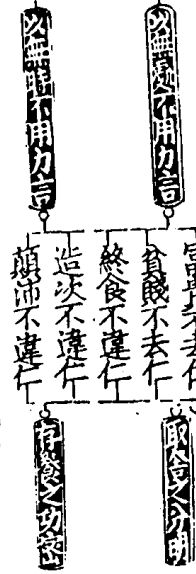 以無處不用力言
以無時不用力言
富貴不去仁
貧賤不去仁
終食不違仁
造次不違仁
顛沛不違仁
取舍之分明
存養之功密